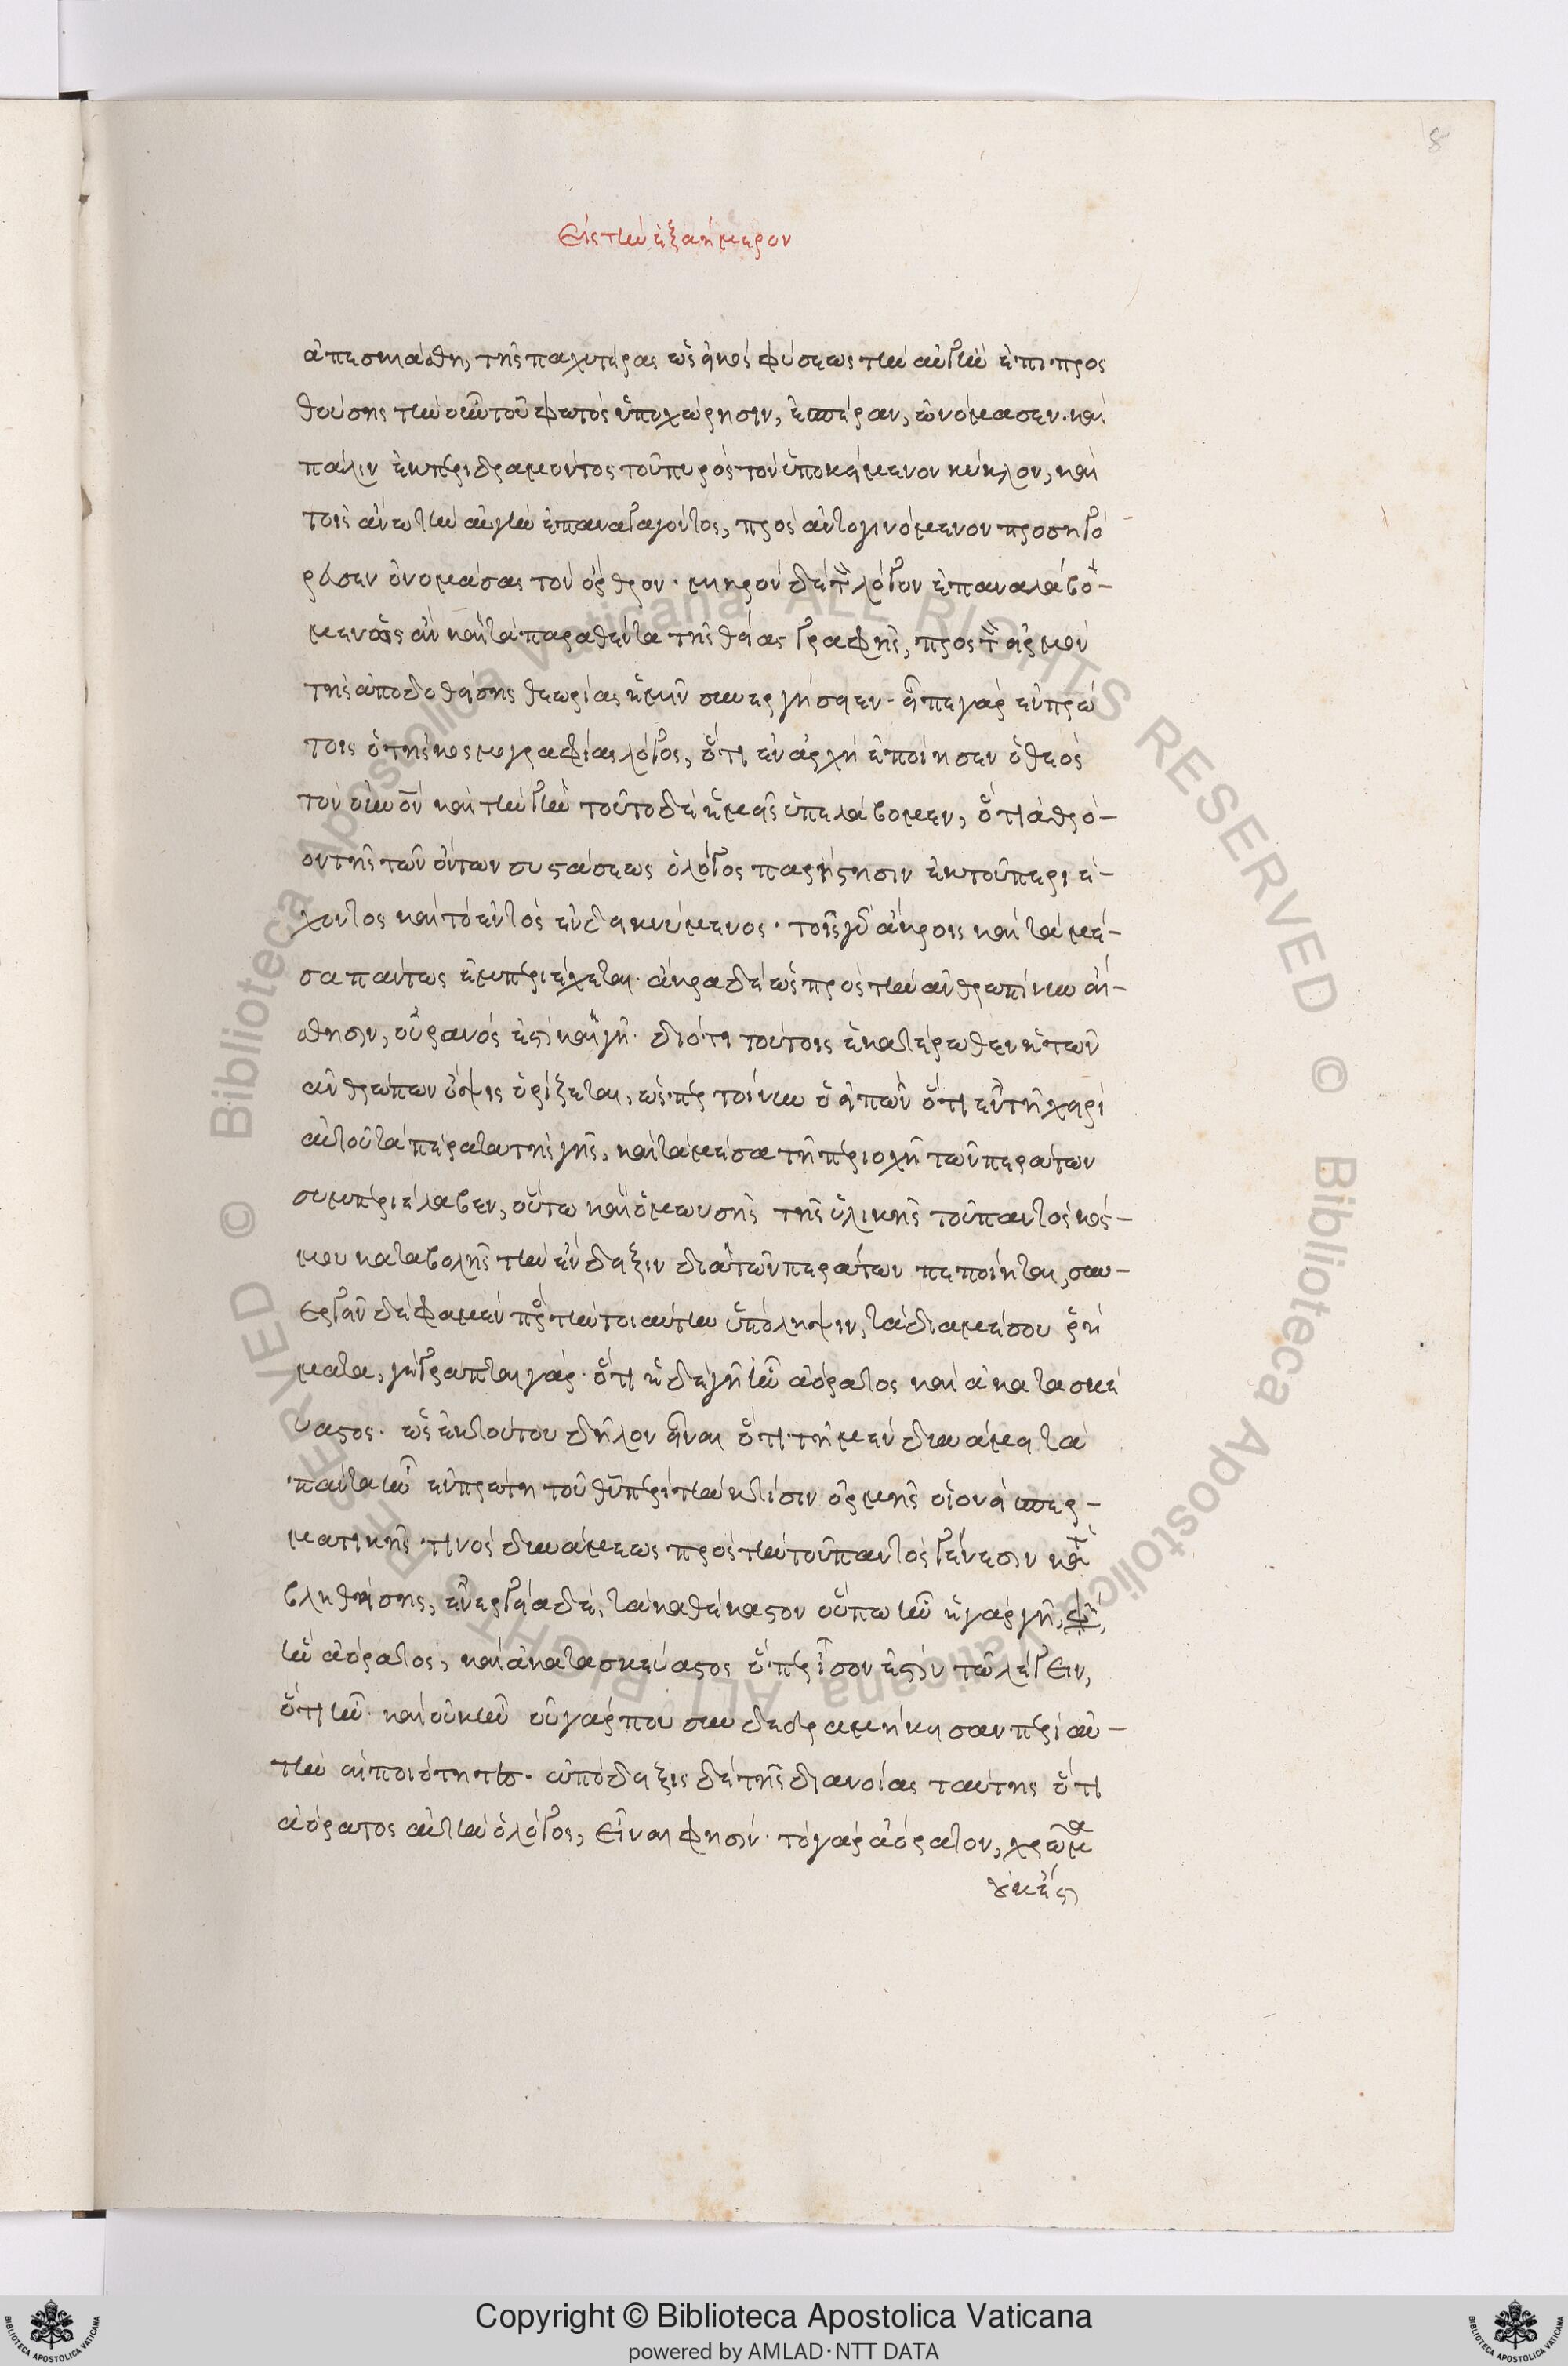 8
Εἰς τὴν ἑξαήμερον
ἀπεσκιάσθη, τῆς παχυτέρας ὡς εἰκὸς φύσεως τὴν αὐγὴν ἐπιπρος
θούσης τὴν οὖν τοῦ φωτὸς ὑποχώρησιν, ἑσπέραν, ὠνόμασεν. καὶ
πάλιν ἐκπεριδραμόντος τοῦ πυρὸς τὸν ὑποκείμενον κύκλον, καὶ
τοῖς ἄνω τὴν αὐγὴν ἐπαναγαγόντος, πρὸς αὐτὸ γινόμενον προσηγό
ρευσεν ὀνομάσας τὸν ὄρθρον. μικρὸν δὲ τὸν λόγον ἐπαναλαβό-
μενος ἂν καὶ τὰ παραθέντα τῆς θείας γραφῆς, πρὸς τὸν εἱρμὸν
τῆς ἀποδοθείσης θεωρίας ἡμῖν συνεργήσαιεν. εἶπε γὰρ ἐν πρώ
τοις ὁ τῆς κοσμογραφίας λόγος, ὅτι ἐν ἀρχῇ ἐποίησεν ὁ θεὸς
τὸν οὐνον καὶ τὴν γῆν τοῦτο δὲ ἡμεῖς ὑπελάβομεν, ὅτι ἀθρό-
ον τῆς τῶν ὄντων συστάσεως ὁ λόγος παρίστησιν ἐκ τοῦ περι έ-
χοντος καὶ τὸ ἐντὸς ἐνδεικνύμενος. τοῖς γὰρ ἄκροις καὶ τὰ μέ-
σα πάντως ἐμπεριέχεται. ἄκρα δὲ ὡς πρὸς τὴν ἀνθρωπίνην αἴ-
σθησιν, οὐρανός ἐστι καὶ γῆ. διότι τούτοις ἑκατέρωθεν ἡ τῶν
ἀνθρώπων ὄψις ὁρίζεται, ὥσπερ τοίνυν ὁ εἰπὼν ὅτι ἐν τῇ χειρὶ
αὐτοῦ τὰ πέρατα τῆς γῆς, καὶ τὰ μέσα τῇ περιοχῇ τῶν περάτων
συμπεριέλαβεν, οὕτω καὶ ὁ μωυσῆς τῆς ὑλικῆς τοῦ παντὸς κόσ-
μου καταβολῆς τὴν ἔνδειξιν διὰ τῶν περάτων πεποίηται, συν-
εργεῖν δέ φαμεν πρὸς τὴν τοιαύτην ὑπόληψιν, τὰ διαμέσου ῥή
ματα, γέγραπται γάρ. ὅτι ἡ δὲ γῆ ἦν ἀόρατος καὶ ἀκατασκεύ
υαστος. ὡς ἐκ τούτου δῆλον εἶναι ὅτι τῇ μὲν δυνάμει τὰ
πάντα ἦν ἐν πρώτῃ τοῦ θῦ περὶ τὴν κτίσιν ὁρμῆς οἱονεὶ σπερ-
ματικῆς τινὸς δυνάμεως πρὸς τὴν τοῦ παντὸς γένεσιν κατα
βληθείσης, ἐνεργείᾳ δὲ, τὰ καθέκαστον οὔπω ἦν ἡ γὰρ γῆ, φησὶν,
ἦν ἀόρατος, καὶ ἀκατασκεύαστος ὅπερ ἴσον ἐστὶν τῷ λέγειν,
ὅτι ἦν. καὶ οὐκ ἦν οὐ γάρ που συνδεδραμήκεισαν περὶ αὐ-
τὴν αἱ ποιότητες. ἀπόδειξις δὲ τῆς διανοίας ταύτης ὅτι
ἀόρατος αὐτὴν ὁ λόγος, εἶναι φησίν. τὸ γὰρ ἀόρατον, χρῶμα
οὐκ ἔστι
Copyright © Biblioteca Apostolica Vaticana
powered by AMLAD·NTT DATA